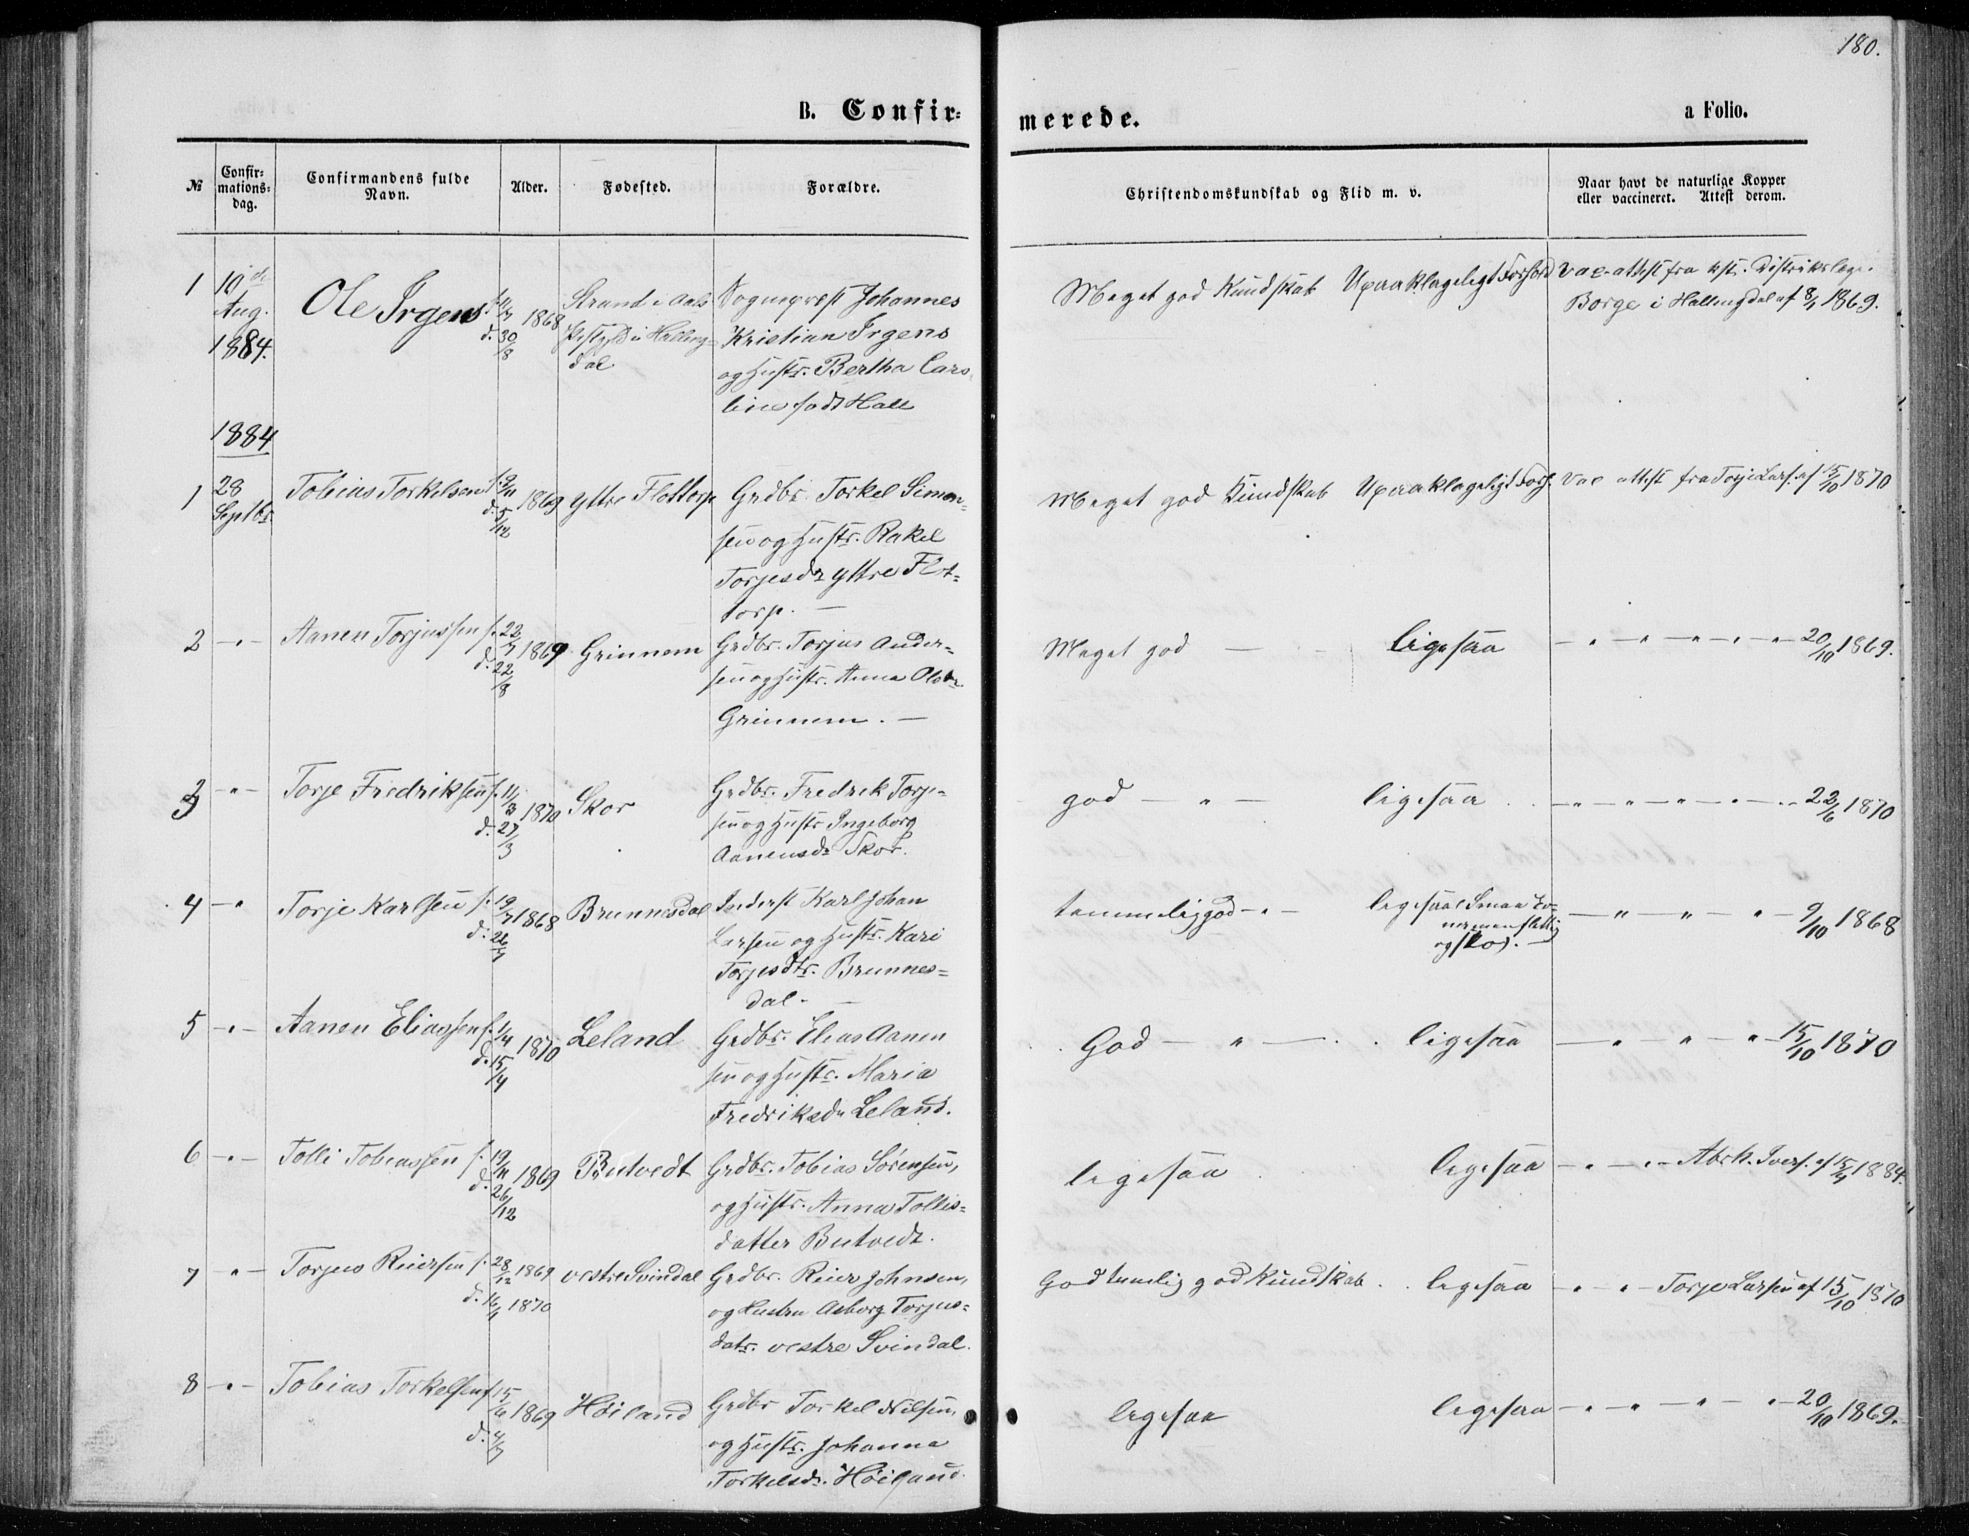 180.
B. Confir-
merede.
a Folio.
№
Confir-
mations-
dag.
Confirmandens fulde
Navn.
Alder.
Fødested.
Forældre.
Christendomskundskab og Flid m. v.
Naar havt de naturlige Kopper
eller vaccineret. Attest derom.
1 10de Aug. 1884. Ole Irgens f. d. 30/8 1868
Strand i Aals
Hallingdal
Sognepræst Johannes
Kristian Irgens
og Hustr. Bertha Caro-
line født Hall
Meget god Kundskab Upaaklageligt Forhold Vac. attest fra kst. Distriktslæge
Borge i Hallingdal af 8/9 1869.
1884
1 28 Septbr Tobias Torkelsen f. 9/11 d. 5/12 1869 Yttre Flottorp
Grdbr. Torkel Simon-
sen og Hustr. Rakel
Torjesdr yttre Flot-
torp. —
Meget god Kundskab Upaaklageligt Forh. Vac attest fra Torje Lars. af 15/10 1870
2 -"- Aanen Torjussen f. 22/7 d. 22/8 1869 Grinnem
Grdbr. Torjus Ander-
sen og Hustr. Anna Olsdr
Grinnem. —
Meget god — ligesaa — " — " — " — " — 20/10 1869.
3 -"- Torje Fredriksen f. 11/3 d. 27/3 1870 Skor
Grdbr. Fredrik Torje-
sen og Hustr Ingeborg
Aanensdr Skor.
god — " — ligesaa — " — " — " — " — 22/6 1870
4 -"- Torje Karlsen f. 19/7 d. 26/7 1868 Brunnesdal
Inderst Karl Johan
Larsen og Hustr. Kari
Torjesdtr. Brunnes-
dal. —
temmelig god — " — ligesaa — " — " — " — 9/10 1868
5 -"- Aanen Eliassen f. 1/4 d. 15/4 1870 Leland
Grdbr. Elias Aanen
sen og Hustr. Maria
Fredriksdr Leland.
God — " — ligesaa — " — " — " — 15/10 1870
6 -"- Tolli Tobiassen f. 19/11 d. 26/12 1869 Butvedt
Grdbr. Tobias Sørensen,
og Hustr. Anna Tollis-
datter Butvedt.
ligesaa ligesaa — " — " — Abrh. Ivers. af 15/7 1884.
7 " — Torjus Reiersen f. 28/12 1869 d. 1870 vestre Svindal
Grdbr. Reier Johnsen,
og Hustru Asborg Torjus-
datr. vestre Svindal.
God temlig god Kundskab. ligesaa — " — " — Torje Larsen af 15/10 1870
8 -"- Tobias Torkelsen f. 15/6 d. 4/7 1869 Höiland
Grdbr Torkel Nilsen,
og Hustr. Johanna
Torkelsdr. Höiland.
ligesaa ligesaa — " — " — " — " — 20/10 1869.